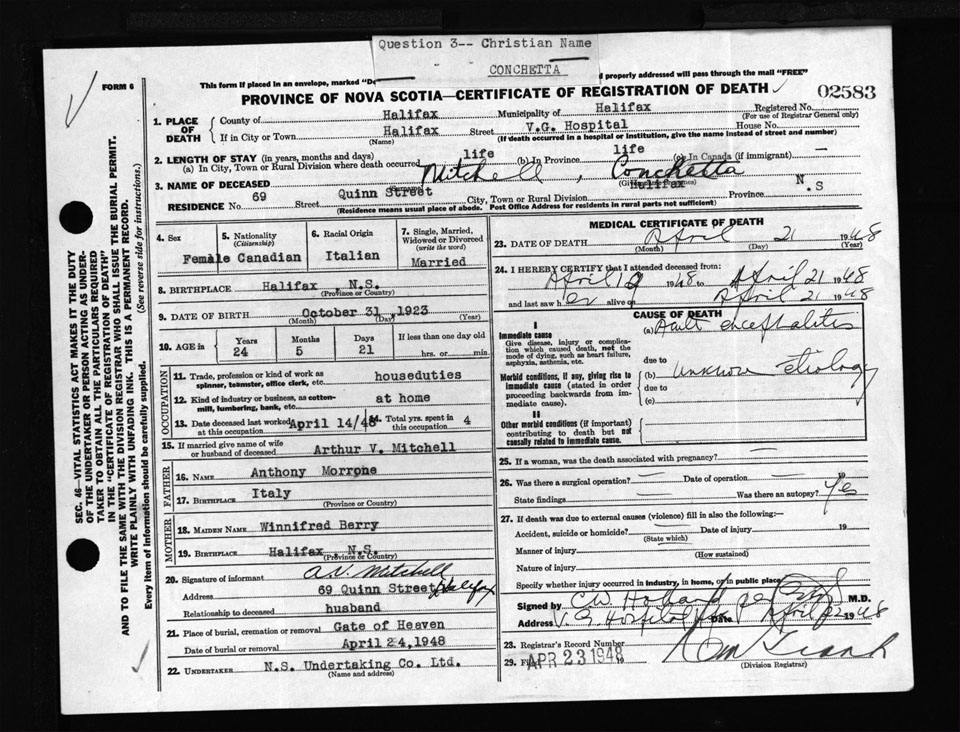 Question 3-- Christian Name
CONCHETTA
FORM 6
This form if placed in an envelope, marked "De
properly addressed will pass through the mail "FREE"
PROVINCE OF NOVA SCOTIA—CERTIFICATE OF REGISTRATION OF DEATH
02583
1. PLACE OF DEATH
County of Halifax Municipality of Halifax Registered No.
(For use of Registrar General only)
If in City or Town Halifax Street V.G. Hospital House No.
(Name) (If death occurred in a hospital or institution, give the name instead of street and number)
2. LENGTH OF STAY (in years, months and days)
(a) In City, Town or Rural Division where death occurred life (b) In Province life (c) In Canada (if immigrant) —
3. NAME OF DECEASED Mitchell, Conchetta
RESIDENCE No. 69 Street Quinn Street City, Town or Rural Division Halifax Province N.S
(Residence means usual place of abode. Post Office Address for residents in rural parts not sufficient)
4. Sex
Female
5. Nationality
(Citizenship)
Canadian
6. Racial Origin
Italian
7. Single, Married, Widowed or Divorced
(write the word)
Married
8. BIRTHPLACE Halifax, N.S.
(Province or Country)
9. DATE OF BIRTH October 31, 1923
(Month) (Day) (Year)
10. AGE in
Years Months Days If less than one day old
24 5 21 hrs. or min.
OCCUPATION
11. Trade, profession or kind of work as spinner, teamster, office clerk, etc. houseduties
12. Kind of industry or business, as cotton-mill, lumbering, bank, etc. at home
13. Date deceased last worked at this occupation April 14/48 14. Total yrs. spent in this occupation 4
15. If married give name of wife or husband of deceased Arthur V. Mitchell
FATHER
16. Name Anthony Morrone
17. Birthplace Italy
(Province or Country)
MOTHER
18. Maiden Name Winnifred Berry
19. Birthplace Halifax, N.S.
(Province or Country)
20. Signature of informant A.V. Mitchell
Address 69 Quinn Street Halifax
Relationship to deceased husband
21. Place of burial, cremation or removal Gate of Heaven
Date of burial or removal April 24, 1948
22. Undertaker N.S. Undertaking Co. Ltd.
(Name and address)
MEDICAL CERTIFICATE OF DEATH
23. DATE OF DEATH April 21 1948
(Month) (Day) (Year)
24. I HEREBY CERTIFY that I attended deceased from:
April 19 1948 to April 21 1948
and last saw her alive on April 21 1948
CAUSE OF DEATH
I
Immediate cause
Give disease, injury or complication which caused death, not the mode of dying, such as heart failure, asphyxia, asthenia, etc.
(a) Acute encephalitis
due to
Morbid conditions, if any, giving rise to immediate cause (stated in order proceeding backwards from immediate cause).
(b) unknown etiology
due to
(c)
II
Other morbid conditions (if important) contributing to death but not causally related to immediate cause.
25. If a woman, was the death associated with pregnancy? —
26. Was there a surgical operation? — Date of operation — 19
State findings — Was there an autopsy? Yes
27. If death was due to external causes (violence) fill in also the following:—
Accident, suicide or homicide? Date of injury 19
(State which)
Manner of injury
(How sustained)
Nature of injury
Specify whether injury occurred in industry, in home, or in public place
Signed by C.W. Holland M.D.
Address V.G. Hospital Date April 22 1948
28. Registrar's Record Number
29. APR 23 1948
(Division Registrar)
SEC. 46—VITAL STATISTICS ACT MAKES IT THE DUTY
OF THE UNDERTAKER OR PERSON ACTING AS UNDERTAKER TO OBTAIN ALL THE PARTICULARS REQUIRED
IN THE "CERTIFICATE OF REGISTRATION OF DEATH"
AND TO FILE THE SAME WITH THE DIVISION REGISTRAR WHO SHALL ISSUE THE BURIAL PERMIT.
WRITE PLAINLY WITH UNFADING INK. THIS IS A PERMANENT RECORD.
Every item of Information should be carefully supplied. (See reverse side for instructions.)